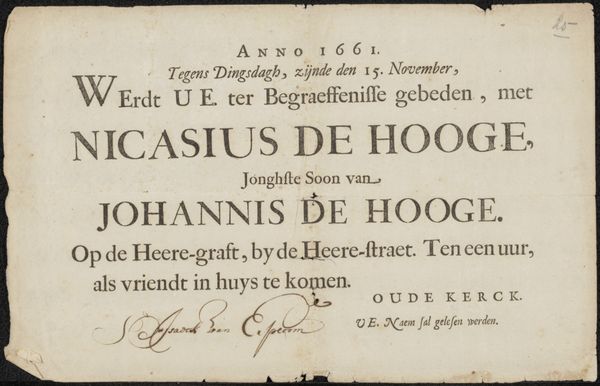 ANNO 1661.
Tegens Dingsdagh, zijnde den 15. November,
WErdt U E. ter Begraeffenisse gebeden, met
NICASIUS DE HOOGE,
Jonghste Soon van
JOHANNIS DE HOOGE.
Op de Heere-graft, by de Heere-straet. Ten een uur,
als vriendt in huys te komen.
OUDE KERCK.
UE. Naem sal gelesen werden.